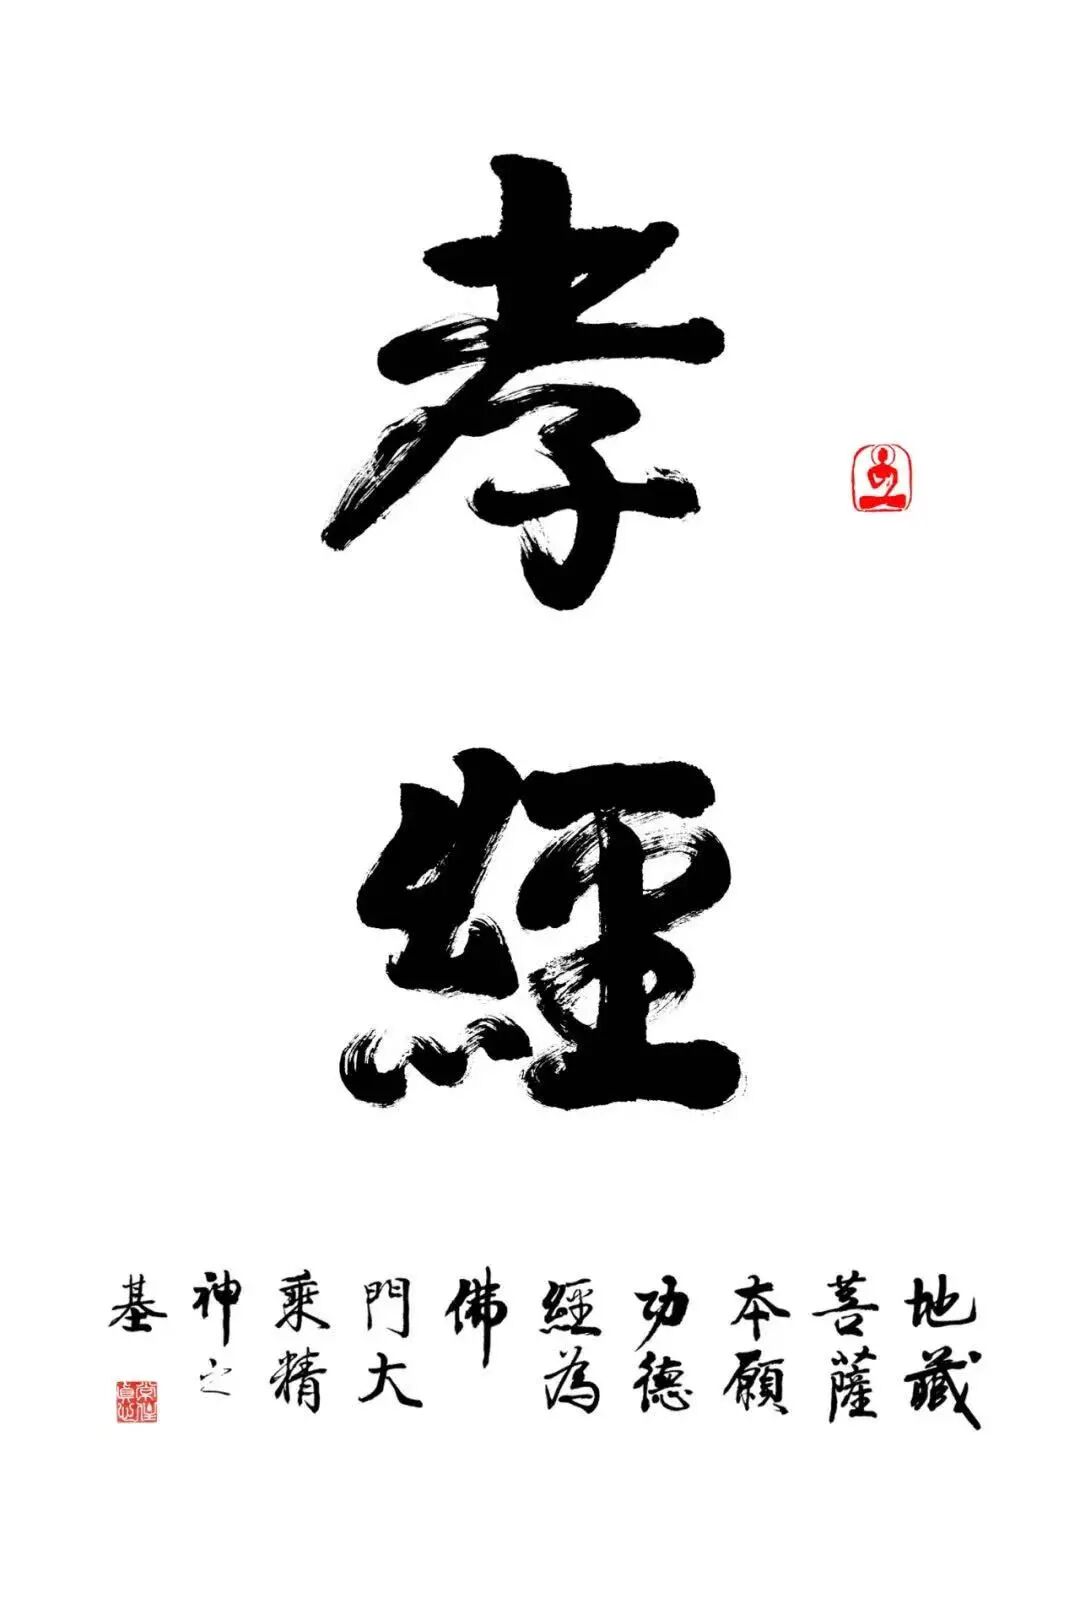 孝
經
地藏
菩薩
本願
功德
經為
佛
門大
乘精
神之
基